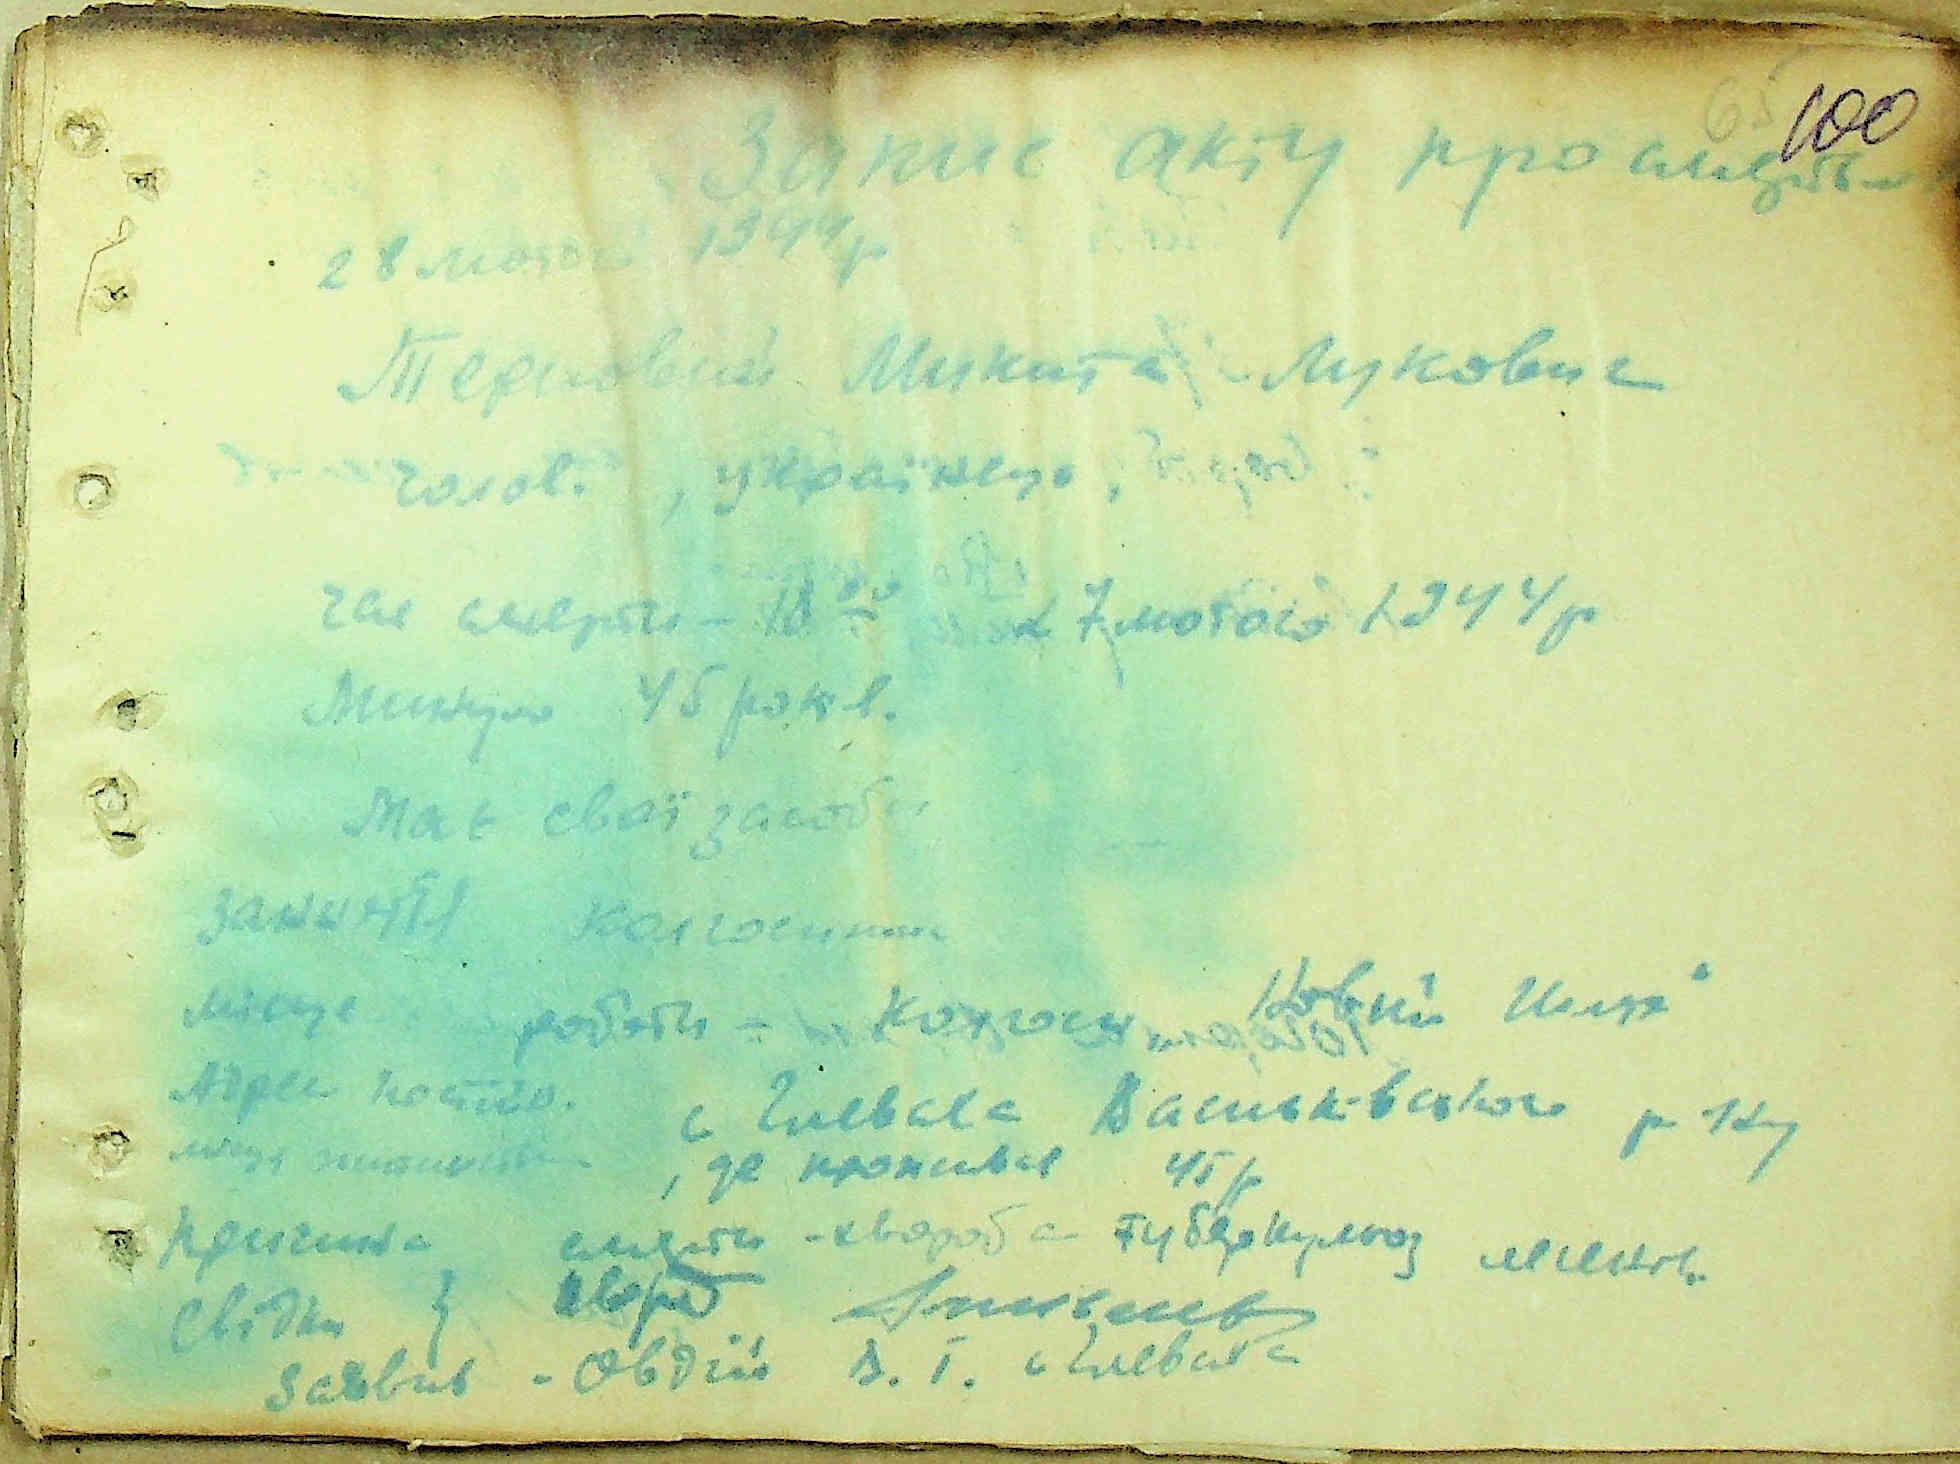 100
Запис акту про смерть
28 лютого 1944 р
Терновий Микита Лукович
Голов. , українець.
час смерти – 18 00 27 лютого 1944 р
Минуло 45 років.
Має свої засоби
Заняття колгоспник
Місце роботи – Колгосп "Новий Шлях"
Адреса постійн.
місця с Глеваха Васильківського р-ну
, де проживав 45 р
Причина смерти – хвороба туберкульоз легенів.
Свідки }
Заявив – Овдій В. Г. с Глеваха